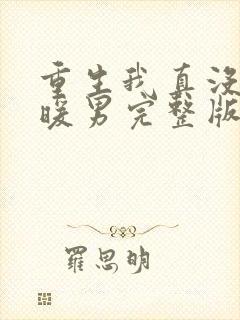 重生我真没
暖男完整版
羅思明